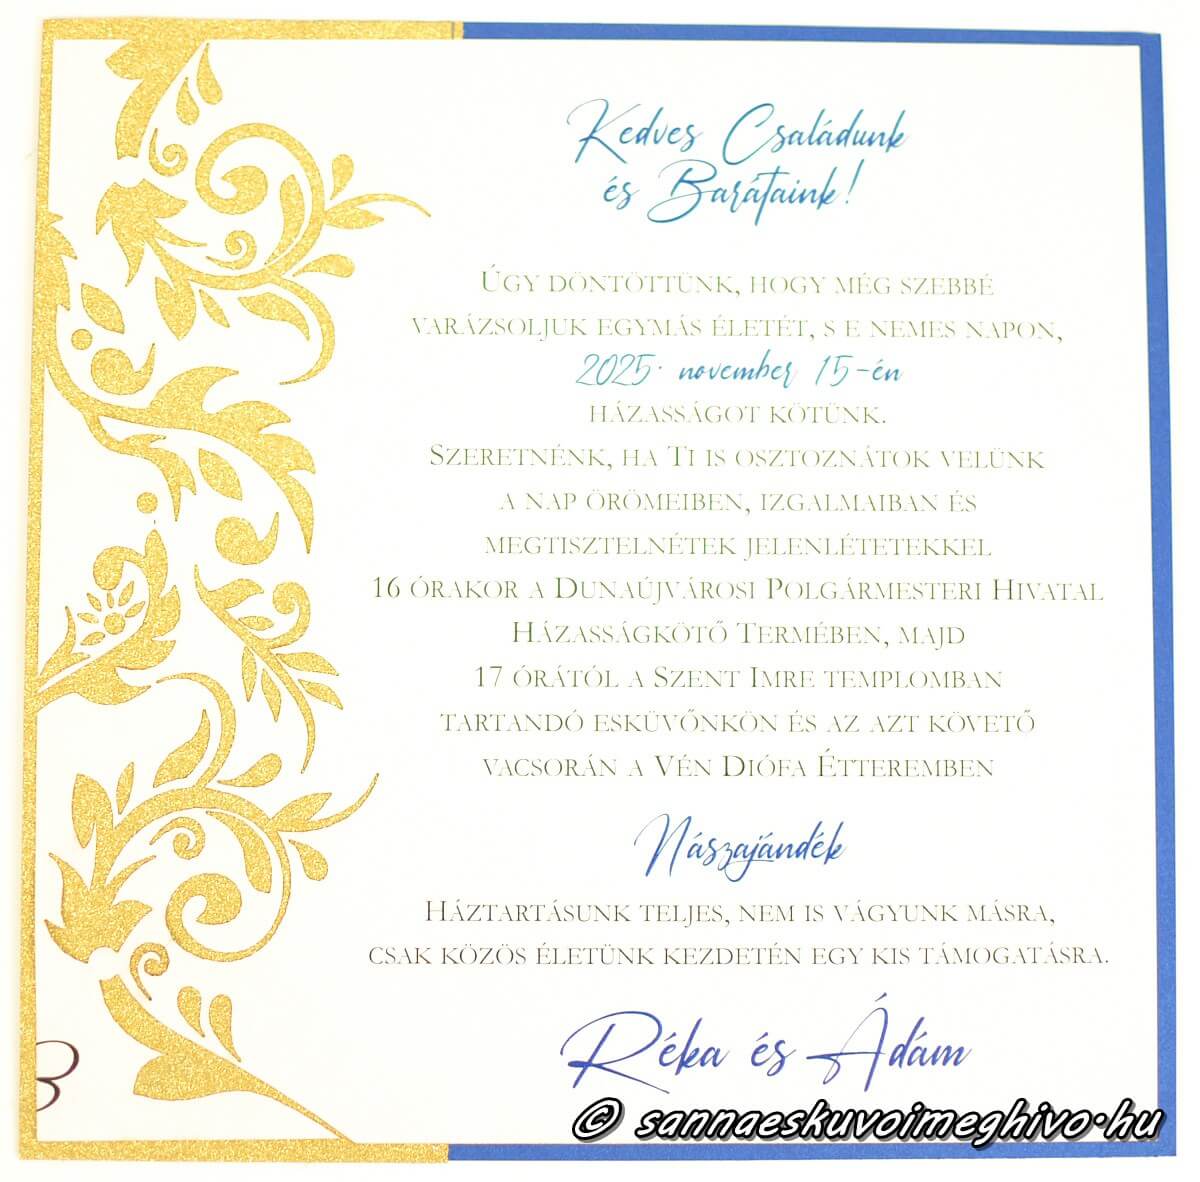 Kedves Családunk
és Barátaink!
Úgy döntöttünk, hogy még szebbé
varázsoljuk egymás életét, s e nemes napon,
2025. november 15-én
házasságot kötünk.
Szeretnénk, ha Ti is osztoznátok velünk
a nap örömeiben, izgalmaiban és
megtisztelnétek jelenlétetekkel
16 órakor a Dunaújvárosi Polgármesteri Hivatal
Házasságkötő Termében, majd
17 órától a Szent Imre templomban
tartandó esküvőnkön és az azt követő
vacsorán a Vén Diófa Étteremben
Nászajándék
Háztartásunk teljes, nem is vágyunk másra,
csak közös életünk kezdetén egy kis támogatásra.
Réka és Ádám
© sannaeskuvoimeghivo.hu